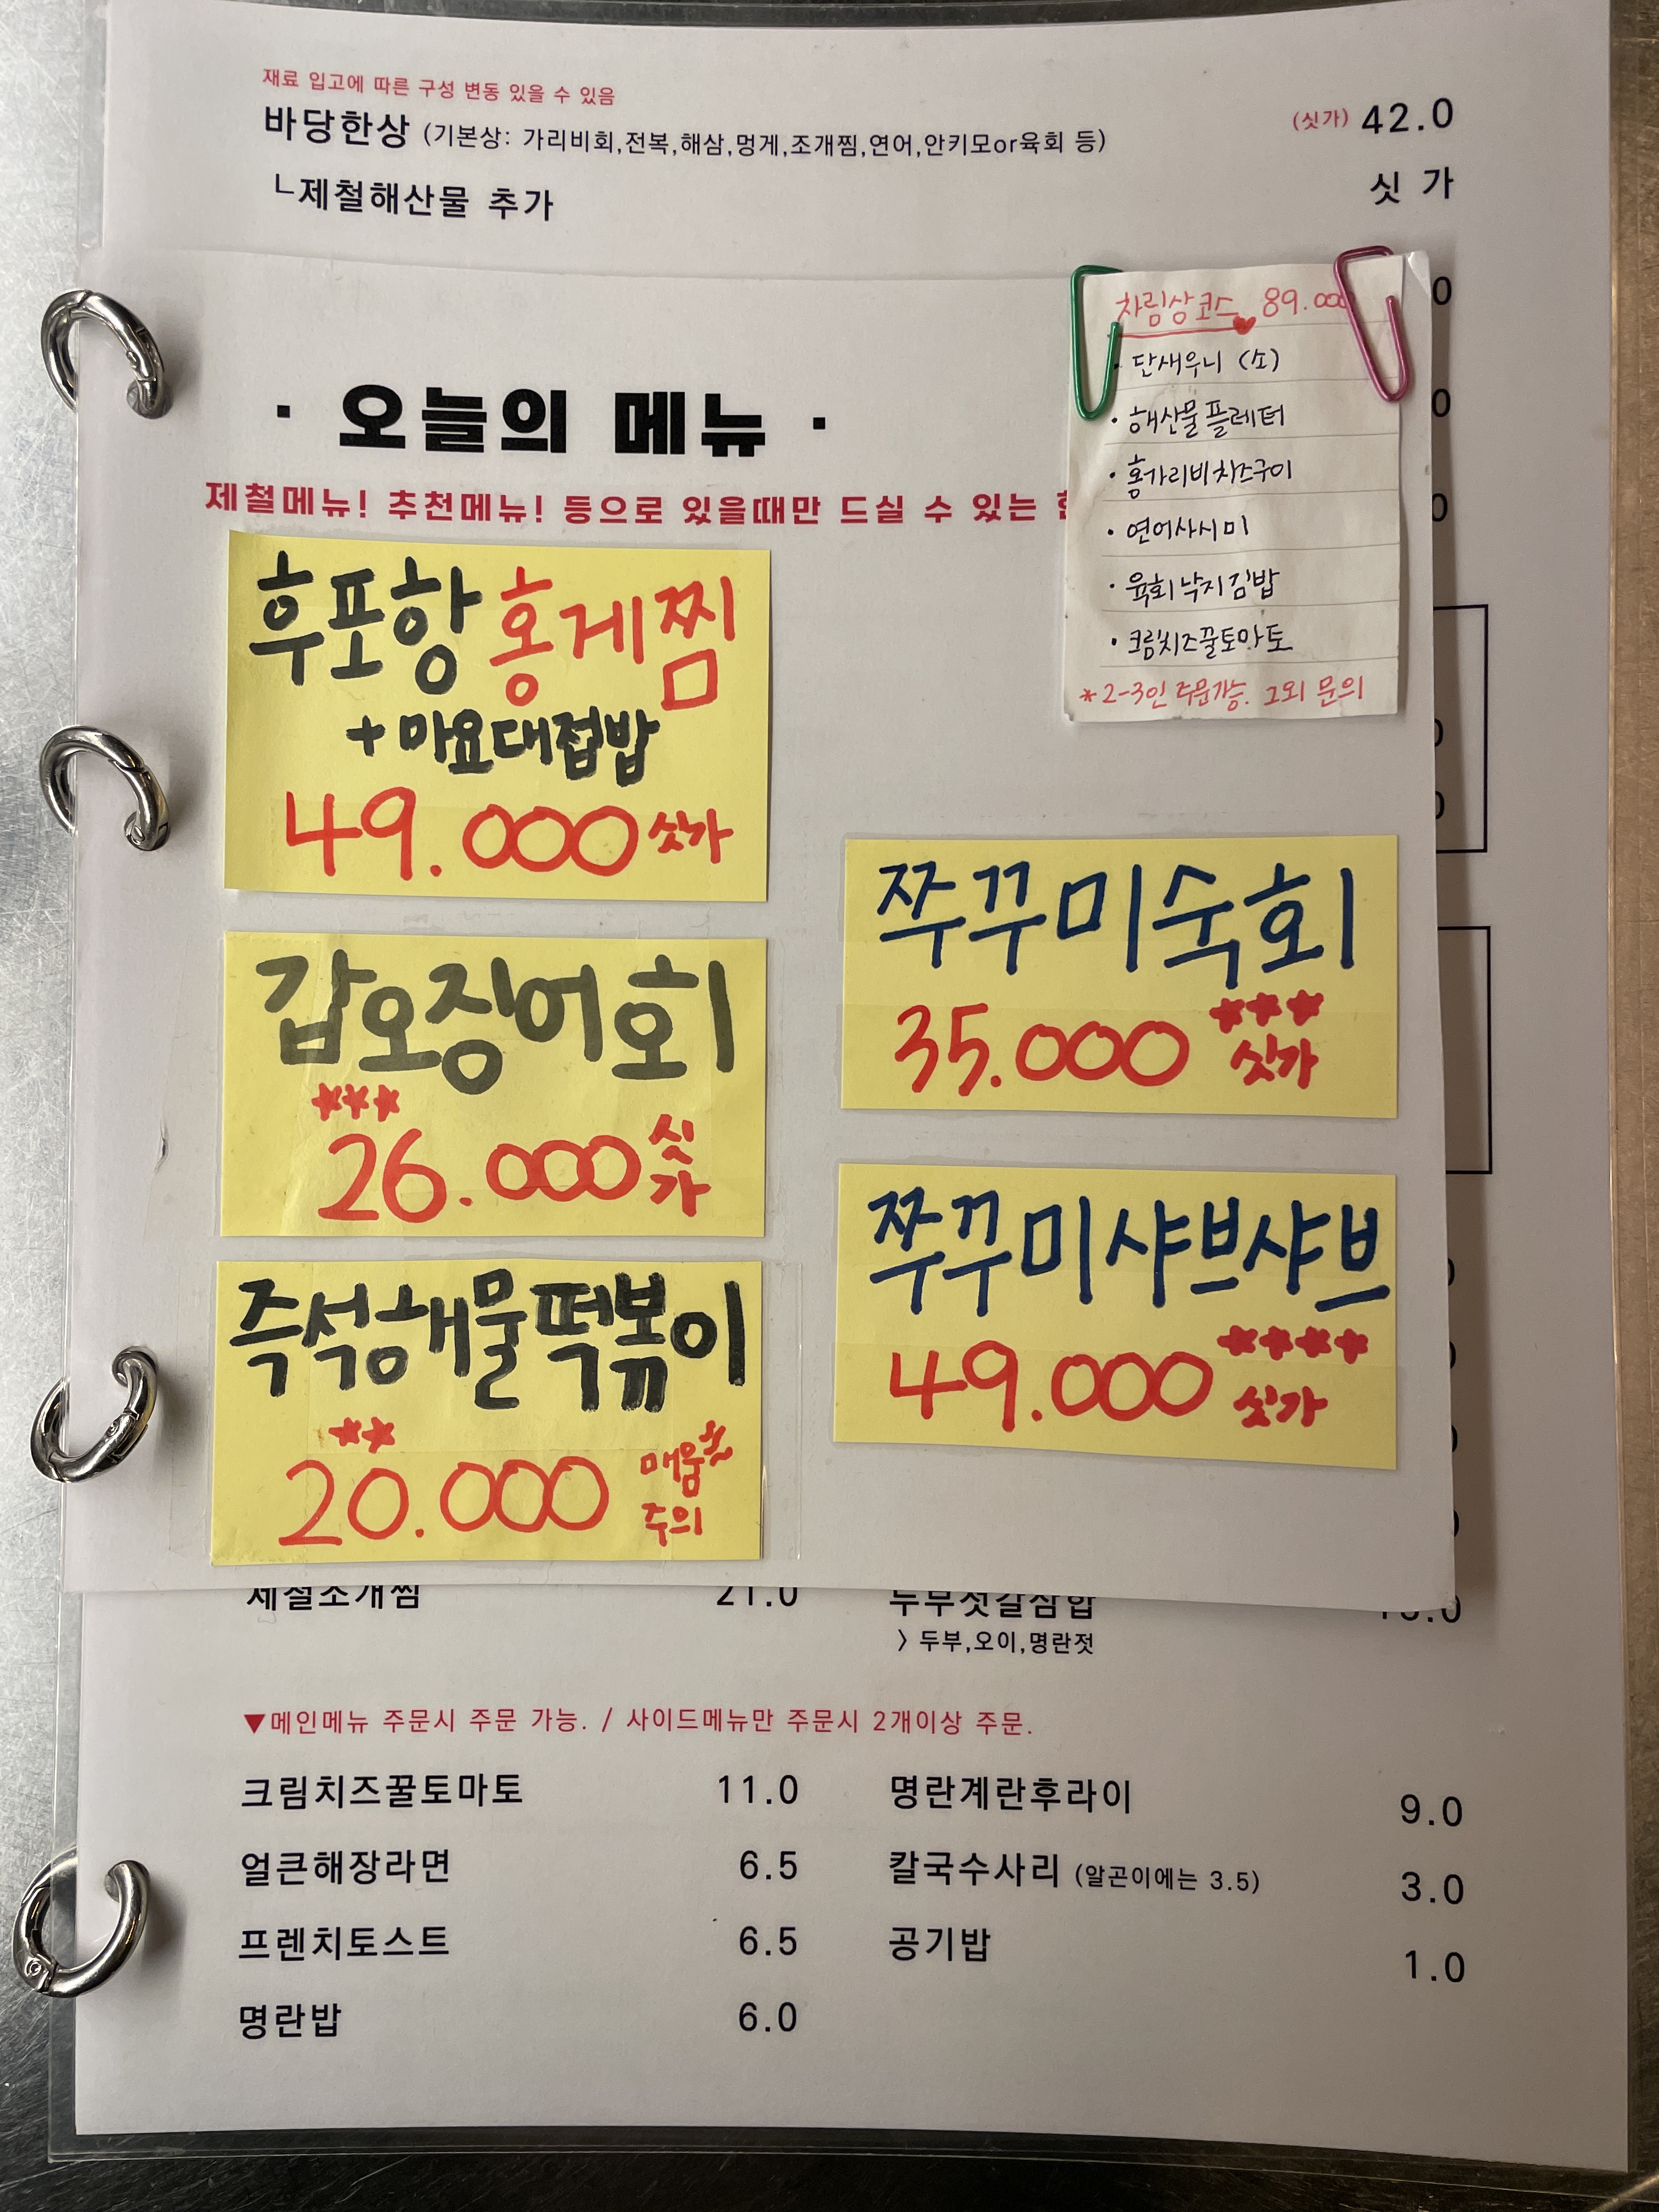 재료 입고에 따른 구성 변동 있을 수 있음
바당한상 (기본상: 가리비회,전복,해삼,멍게,조개찜,연어,안키모or육회 등) (싯가) 42.0
ㄴ제철해산물 추가 싯 가
· 오늘의 메뉴 ·
제철메뉴! 추천메뉴! 등으로 있을때만 드실 수 있는
차림상코스 89.000
· 단새우니 (소)
· 해산물플레터
· 홍가리비치즈구이
· 연어사시미
· 육회낙지김밥
· 크림치즈꿀토마토
*2-3인 주문가능. 그외 문의
후포항 홍게찜
+ 마요대접밥
49.000 싯가
갑오징어회
26.000 싯가
즉석해물떡볶이
20.000 매움주의
쭈꾸미숙회
35.000 싯가
쭈꾸미샤브샤브
49.000 싯가
제철조개찜 21.0
두부젓갈삼합
> 두부,오이,명란젓
▼메인메뉴 주문시 주문 가능. / 사이드메뉴만 주문시 2개이상 주문.
크림치즈꿀토마토 11.0
얼큰해장라면 6.5
프렌치토스트 6.5
명란밥 6.0
명란계란후라이 9.0
칼국수사리 (알곤이에는 3.5) 3.0
공기밥 1.0